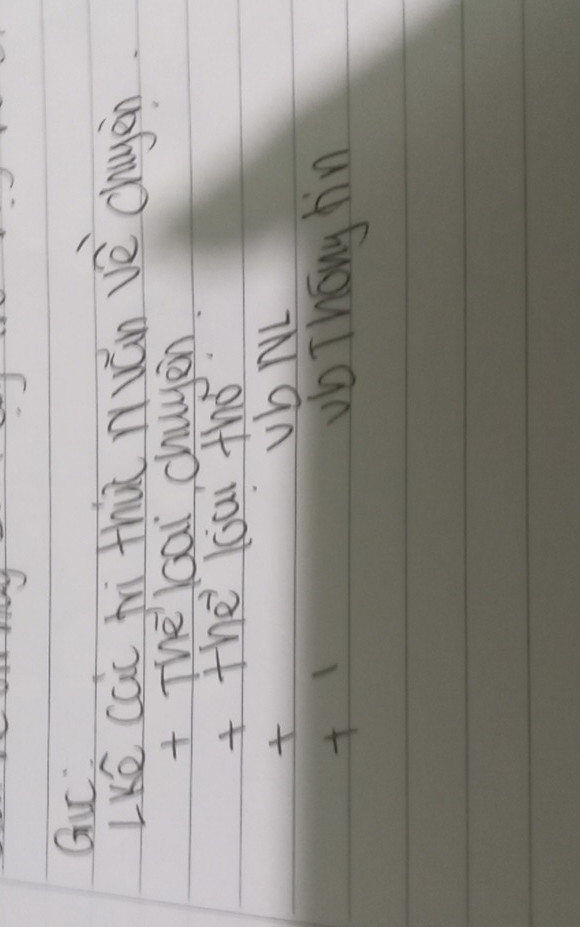 GVC:
LKê các tri thức N văn về chuyện.
+ Thể loại chuyện
+ Thể loại thơ.
+ vb NL
+ vb Thông tin